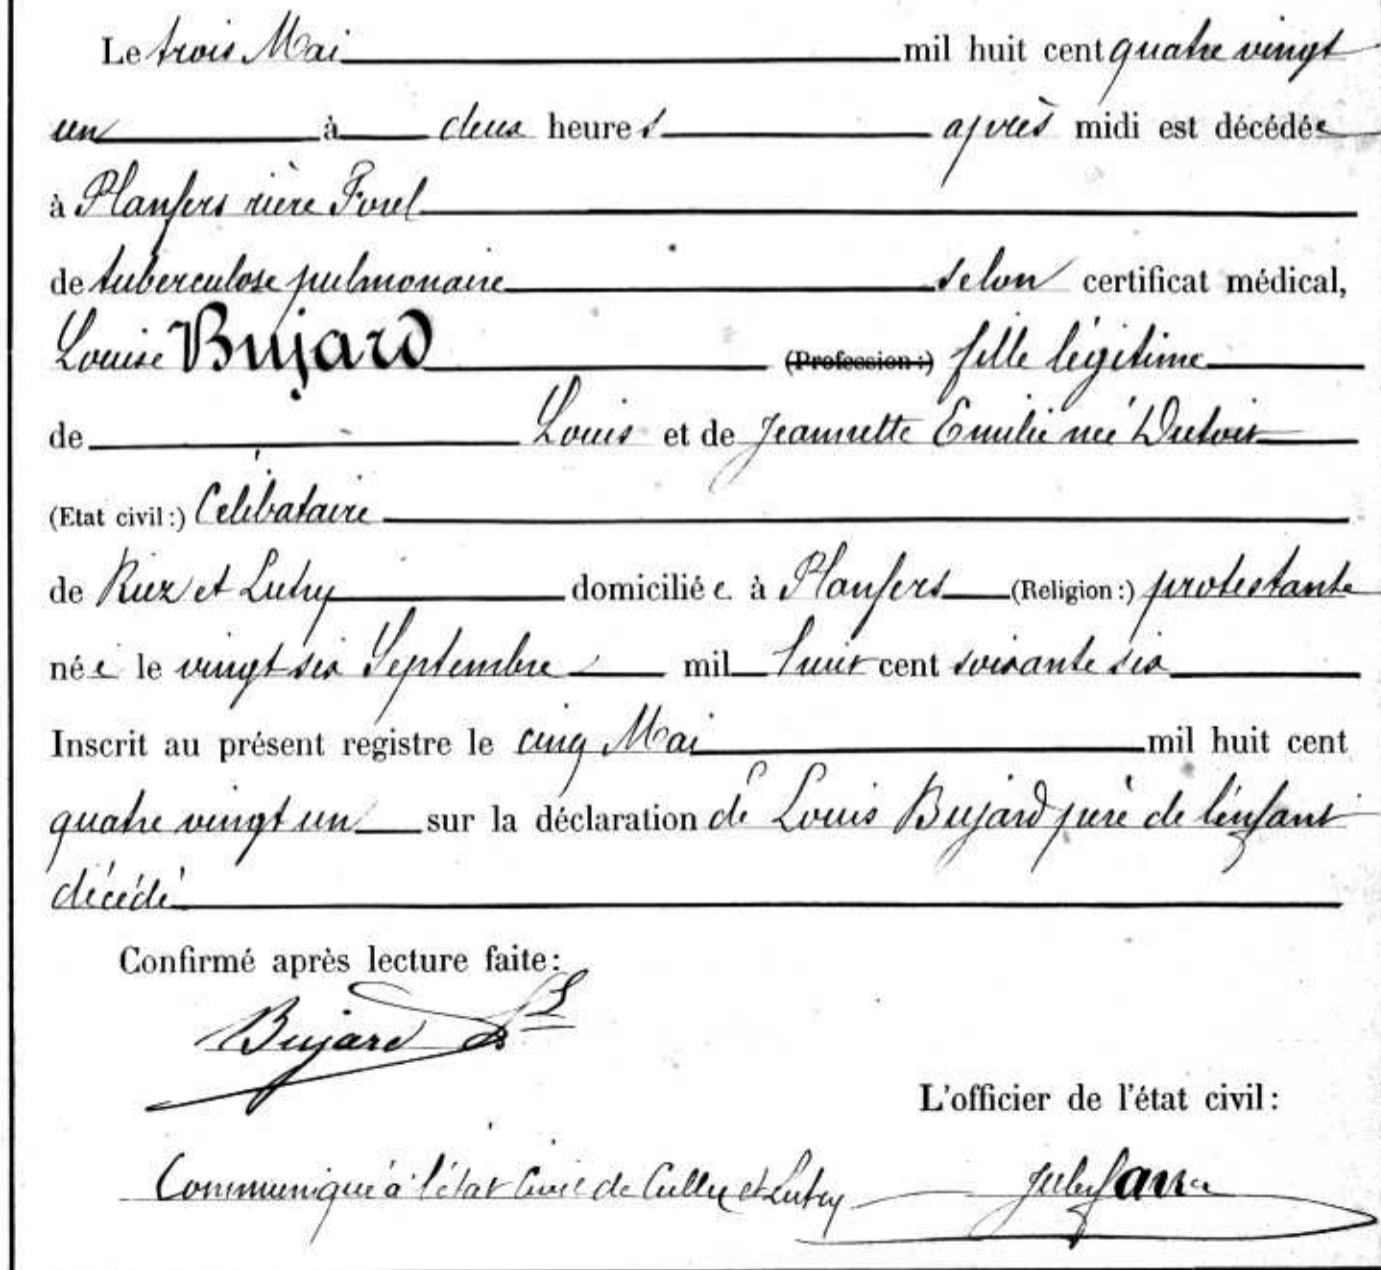 Le trois Mai mil huit cent quatre vingt
un à deux heures après midi est décédée
à Planfers rière Forel
de tuberculose pulmonaire selon certificat médical,
Louise Bujard (Profession:) fille légitime
de Louis et de Jeannette Emilie née Dutoit
(Etat civil:) Célibataire
de Riez et Lutry domiciliée à Planfers (Religion:) protestante
née le vingt six Septembre mil huit cent soixante six
Inscrit au présent registre le cinq Mai mil huit cent
quatre vingt un sur la déclaration de Louis Bujard père de l'enfant
décédé
Confirmé après lecture faite:
Bujard Ls
L'officier de l'état civil:
Communiqué à l'état Civil de Cully et Lutry